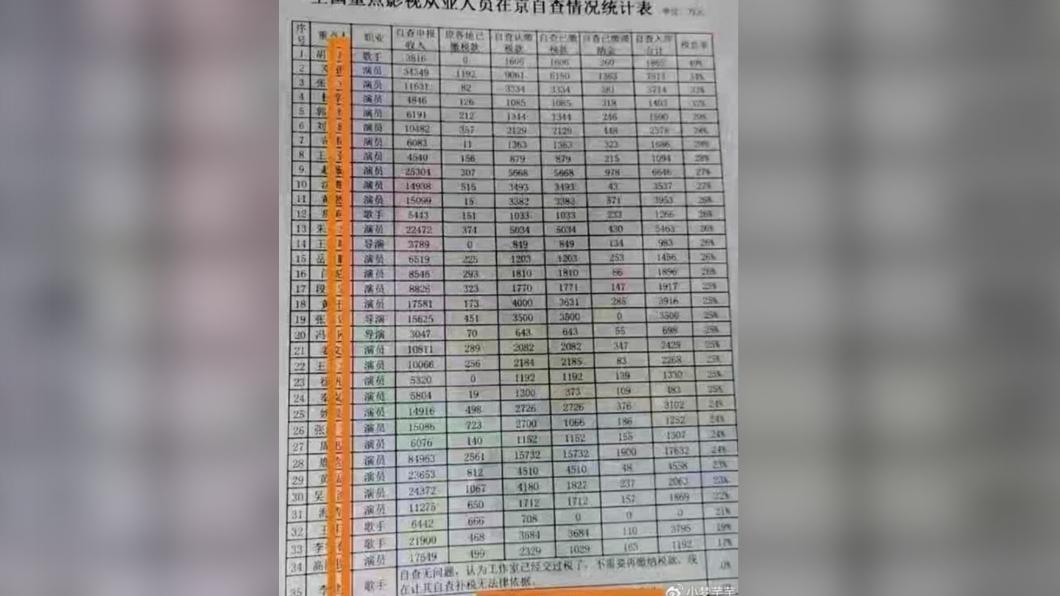 全国重点影视从业人员在京自查情况统计表 单位：万元
序号 职业 自查申报收入 原各地已缴税款 自查认缴税款 自查已缴税款 自查已缴滞纳金 自查入库合计 税负率
1 胡 歌手 3816 0 1606 1606 260 1865 49%
2 演员 34349 1192 9061 6150 1363 7513 34%
3 张 演员 11631 82 3334 3334 381 3714 33%
4 杜 演员 4846 126 1085 1085 318 1403 32%
5 郭 演员 6191 212 1344 1344 246 1590 29%
6 刘 演员 10482 357 2129 2129 448 2578
7 演员 6083 11 1363 1363 323 1686 28%
8 王 演员 4540 156 879 879 215 1094 28%
9 赵 演员 25304 307 5668 5668 978 6646 27%
10 演员 14938 515 3493 3493 43 3537 27%
11 黄 演员 15099 15 3382 3382 571 3953 26%
12 歌手 5443 151 1033 1033 233 1266 26%
13 朱 演员 22472 374 5034 5034 430 5463 26%
14 王 导演 3789 0 849 849 134 983 26%
15 岳 演员 6519 225 1203 1203 253 1456 26%
16 闫 演员 8546 293 1810 1810 86 1896 26%
17 段 演员 8826 323 1770 1771 147 1917 25%
18 黄 演员 17581 173 4000 3631 285 3916 25%
19 张 导演 15625 451 3500 3500 0 3500 25%
20 冯 导演 3047 70 643 643 55 698 25%
21 姜 演员 10811 289 2082 2082 347 2429 25%
22 王 演员 10066 256 2184 2185 83 2268 25%
23 演员 5320 0 1192 1192 139 1330 25%
24 秦 演员 5804 19 1300 373 109 483 25%
25 姚 演员 14916 498 2726 2726 376 3102 24%
26 张 演员 15086 723 2700 1066 186 1252 24%
27 周 演员 6076 140 1152 1152 155 1307 24%
28 演员 84963 2561 15732 15732 1900 17632 24%
29 黄 演员 23653 812 4510 4510 48 4558 23%
30 吴 演员 24372 1067 4180 1827 237 2063 23%
31 演员 11275 650 1712 1712 157 1869 22%
32 王 歌手 6442 666 708 0 0 0 21%
33 李 歌手 21900 468 3684 3684 110 3795 19%
34 高 演员 17549 499 2329 1029 163 1192 17%
35 李 歌手 自查无问题，认为工作室已经交过税了，不需要再缴纳税款，现 0%
在让其自查补税无法律依据。